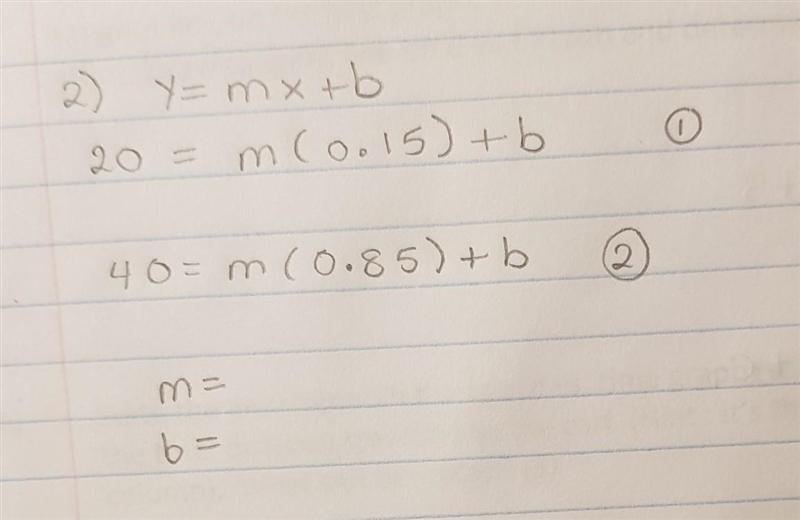 2) y = mx + b
20 = m(0.15) + b ①
40 = m(0.85) + b ②
m =
b =